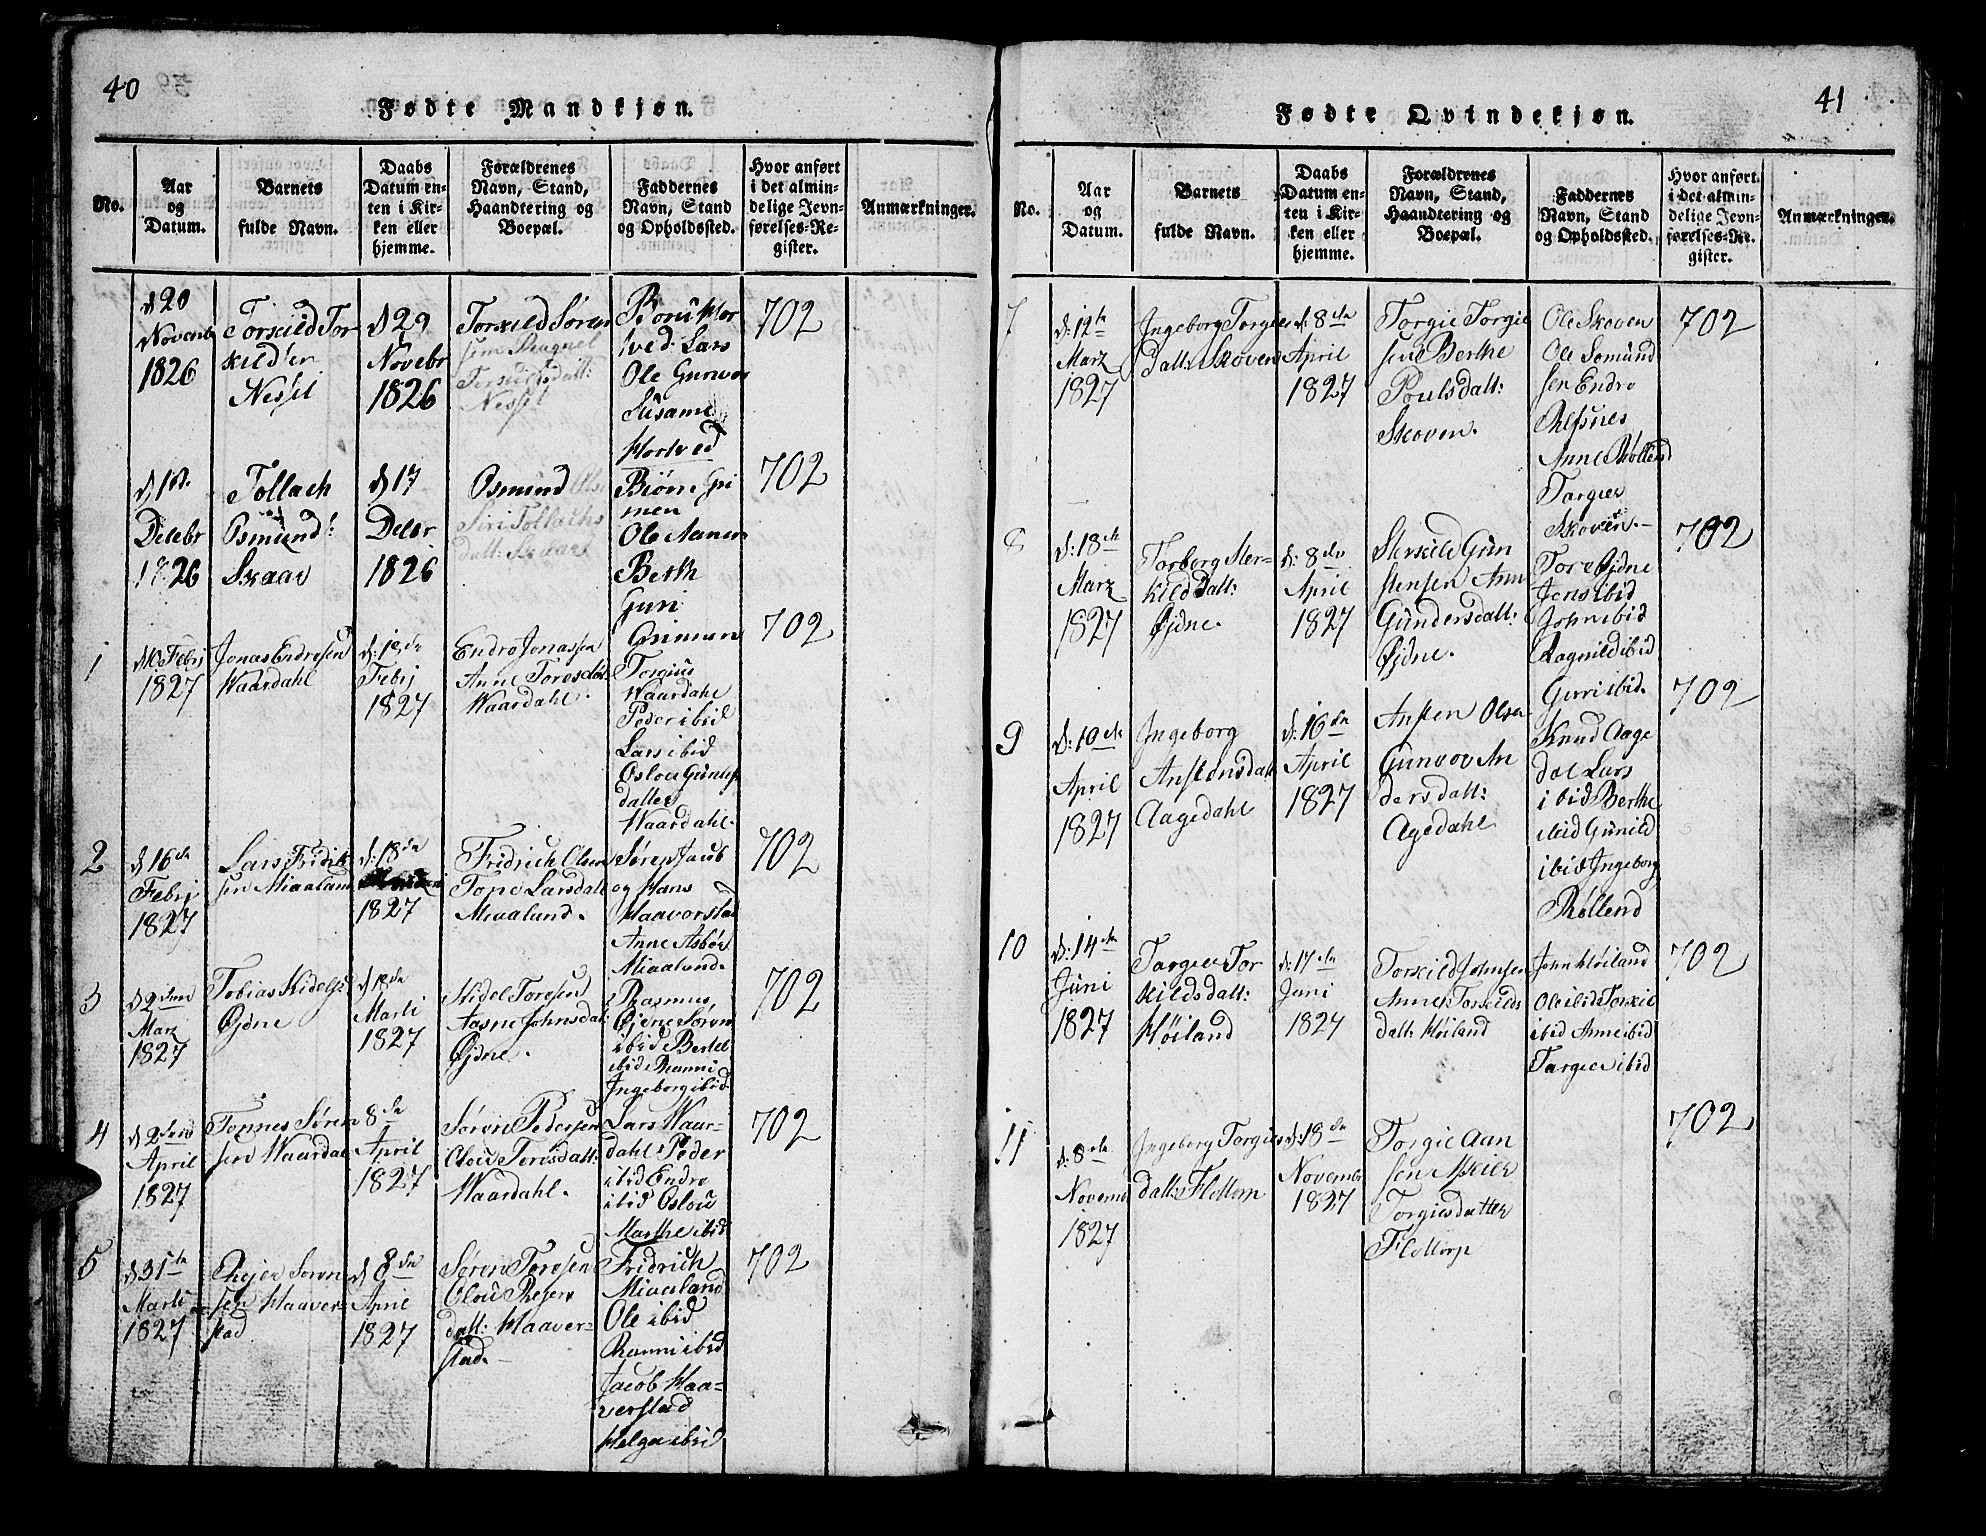 40
Fødte Mandkjøn.
No.
Aar
og
Datum.
Barnets
fulde Navn.
Daabs
Datum en-
ten i Kir-
ken eller
hjemme.
Forældrenes
Navn, Stand,
Haandtering og
Boepæl.
Faddernes
Navn, Stand
og Opholdssted.
Hvor anført
i det almin-
delige Jevn-
førelses-Re-
gister.
Anmærkninger.
d 20
Novemb
1826
Torkild Tor
kildsen
Nesset
d 29
Novebr
1826
Torkild Søren
sen
Nesset
Lars
Ole
Susanne
Hortved
702
d, 1te
Decebr
1826
Tollach
Osmund
Skaar
d, 17
Decbr
1826
Osmund
Siri Tollachs
datt: Skaar
Biørn Gri
men
Ole
Berth
Guri
Grimen
702
1
Febrj
1827
Jonas Endresen
Waardahl
Febrj
1827
Endre Jonassen
Anne Toresdatt
Waardahl.
Torgius
Waardahl
Peder ibid
Lars ibid
datter
Waardahl.
702
2
d, 16de
Febrj
1827
Lars Fridik
sen Miaaland
d: 18de
1827
Fridrich Olsen
Tone Larsdatt
Miaaland.
Søren Jacob
og Hans
Haaverstad
Anne
Miaaland.
702
3
Marz
1827
Tobias Kidels:
Øjdne
d 18de
Marti
1827
Kidel Toresen
Aasne Johnsdatt
Øjdne.
Rasmus
Øjdne Søren
ibid Bertel
ibid Ranni
Ingeborg ibid
702
4
April
1827
Tonnes Søren
sen Waardal
8de
April
1827
Søren Pedersen
Olou Toresdatt:
Waardahl.
Lars Waar-
dahl Peder
ibid Endre
ibid Oslou
Marthe ibid
702
5
d 31te
Marti
1827
Rejer Søren
sen Haaver-
stad
d 8de
April
1827
Søren Toresen
Olou Rejers
datt: Haaver-
stad.
Fridrich
Miaaland
Ole ibid
Ranni ibid
Jacob Haa-
verstad
Helge ibid
702
41
Fødte Qvindekjøn.
No.
Aar
og
Datum.
Barnets
fulde Navn.
Daabs
Datum en-
ten i Kir-
ken eller
hjemme.
Forældrenes
Navn, Stand,
Haandtering og
Boepæl.
Faddernes
Navn, Stand
og Opholdssted.
Hvor anført
i det almin-
delige Jevn-
førelses-Re-
gister.
Anmærkninger.
7
d: 12te
Marz
1827
Ingeborg Torgies
Datt: Skoven
d: 8de
April
1827
Torgie Torgie
sen Berthe
Poulsdatt:
Skoven.
Ole Skoven
Ole Somund
sen Endre
Anne
Targier
Skoven.
702
8
d: 18de
Marz
1827
Torborg Ster-
kild Datt:
Øjdne.
d: 8de
April
1827
Sterkild Gun
stensen Ann
Gundersdatt:
Øjdne.
Tore Øjdne
Jens ibid
John ibid
Ragnild ibid
Guri ibid.
702
9
d: 10de
April
1827
Ingeborg
Anstensdatt
Aagedahl
d: 16de
April
1827
Ansten Olsen
Gunvor An
dersdatt:
Agedahl
Knud Aage
dal Lars
ibid Berthe
ibid Gunild
ibid Ingeborg
Røllend
702
10
d: 14de
Juni
1827
Targier Tor
kildsdatt:
Høiland
d: 17de
Juni
1827
Torkild Johnsen
Anne Torkilds
datt: Høiland
John Høiland
Ole ibid Torkil
ibid Anne ibid
Targier ibid
702
11
d: 8de
Novemb
1827
Ingeborg Torgies
datt: Flottorp
d: 18de
Novembr
1827
Torgie Aan
sen
Torgiesdatter
Flottorp
702